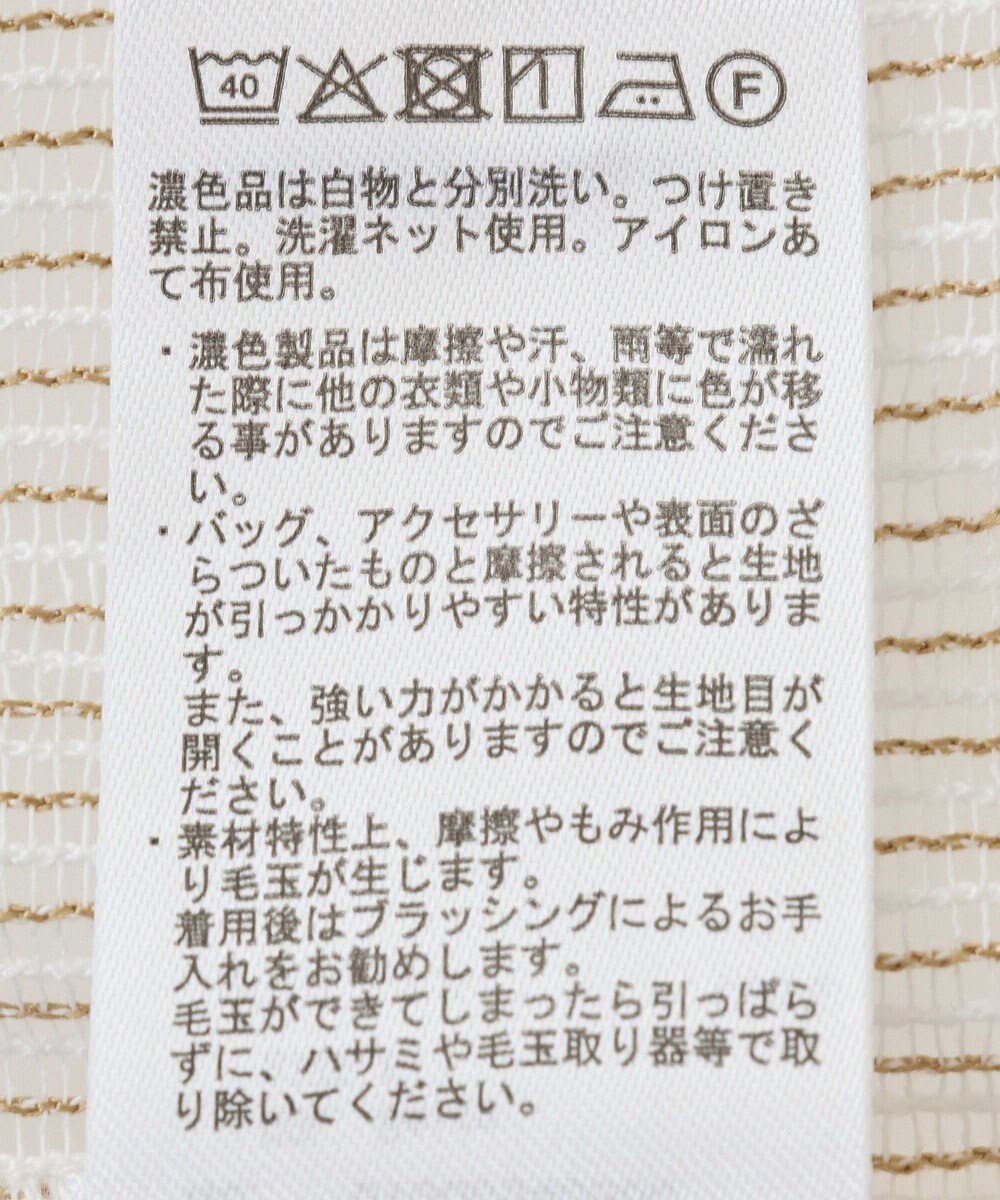 40 F
濃色品は白物と分別洗い。つけ置き
禁止。洗濯ネット使用。アイロンあ
て布使用。
・濃色製品は摩擦や汗、雨等で濡れ
た際に他の衣類や小物類に色が移
る事がありますのでご注意くださ
い。
・バッグ、アクセサリーや表面のざ
らついたものと摩擦されると生地
が引っかかりやすい特性がありま
す。
また、強い力がかかると生地目が
開くことがありますのでご注意く
ださい。
・素材特性上、摩擦やもみ作用によ
り毛玉が生じます。
着用後はブラッシングによるお手
入れをお勧めします。
毛玉ができてしまったら引っぱら
ずに、ハサミや毛玉取り器等で取
り除いてください。